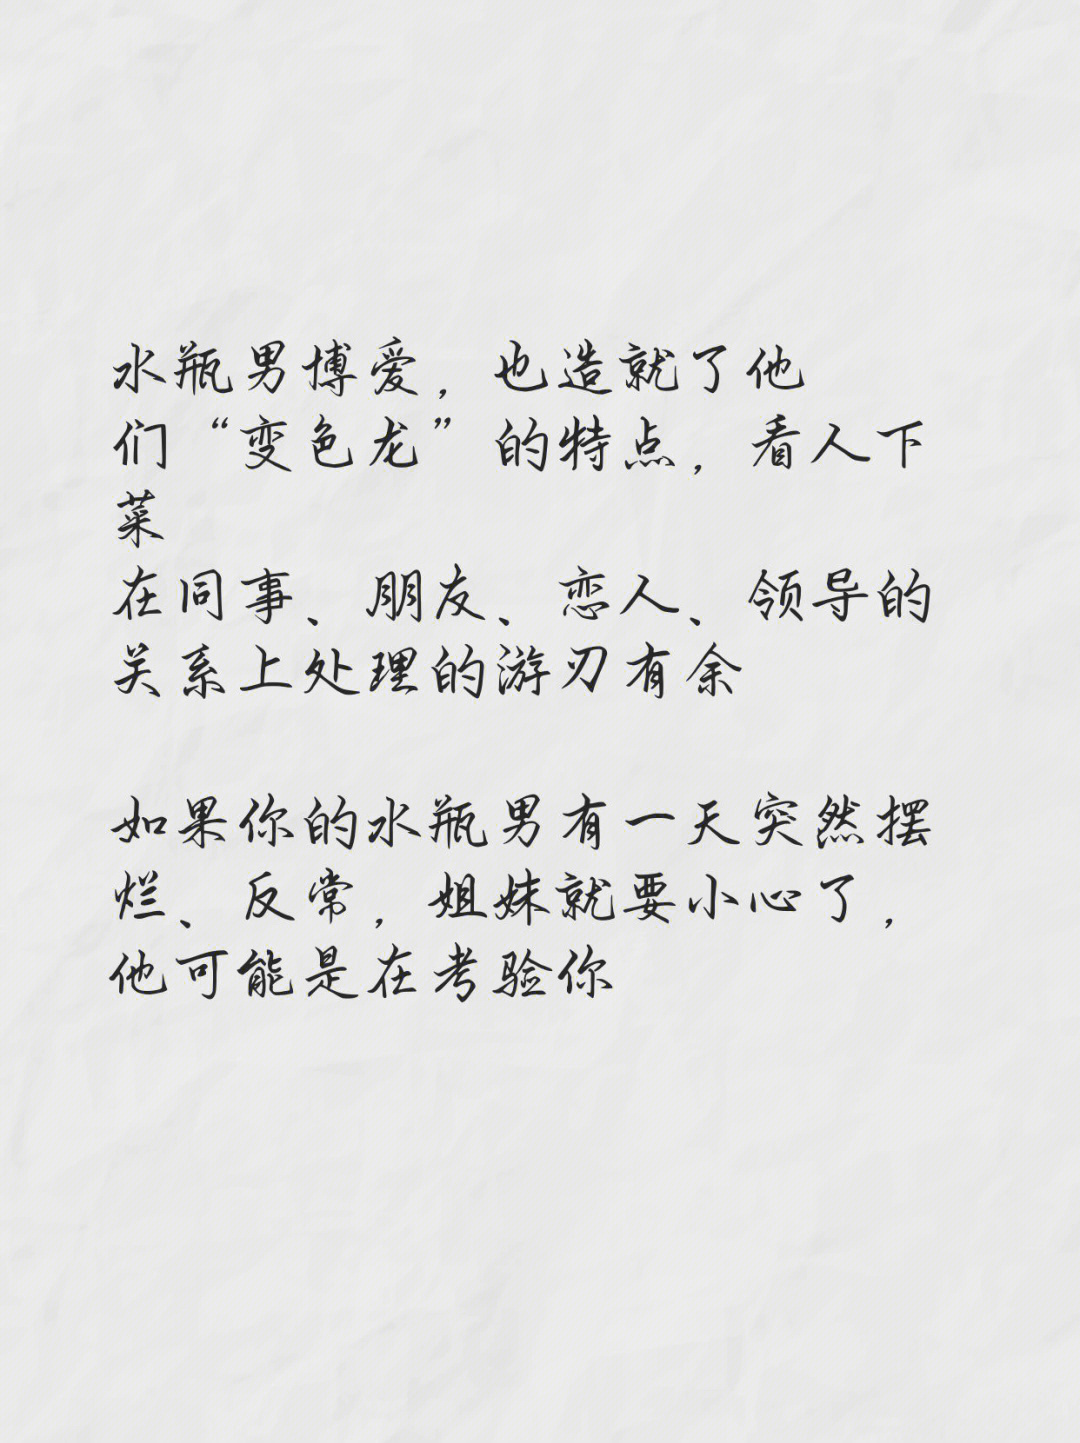 水瓶男博爱，也造就了他
们“变色龙”的特点，看人下
菜
在同事、朋友、恋人、领导的
关系上处理的游刃有余
如果你的水瓶男有一天突然摆
烂、反常，姐妹就要小心了，
他可能是在考验你